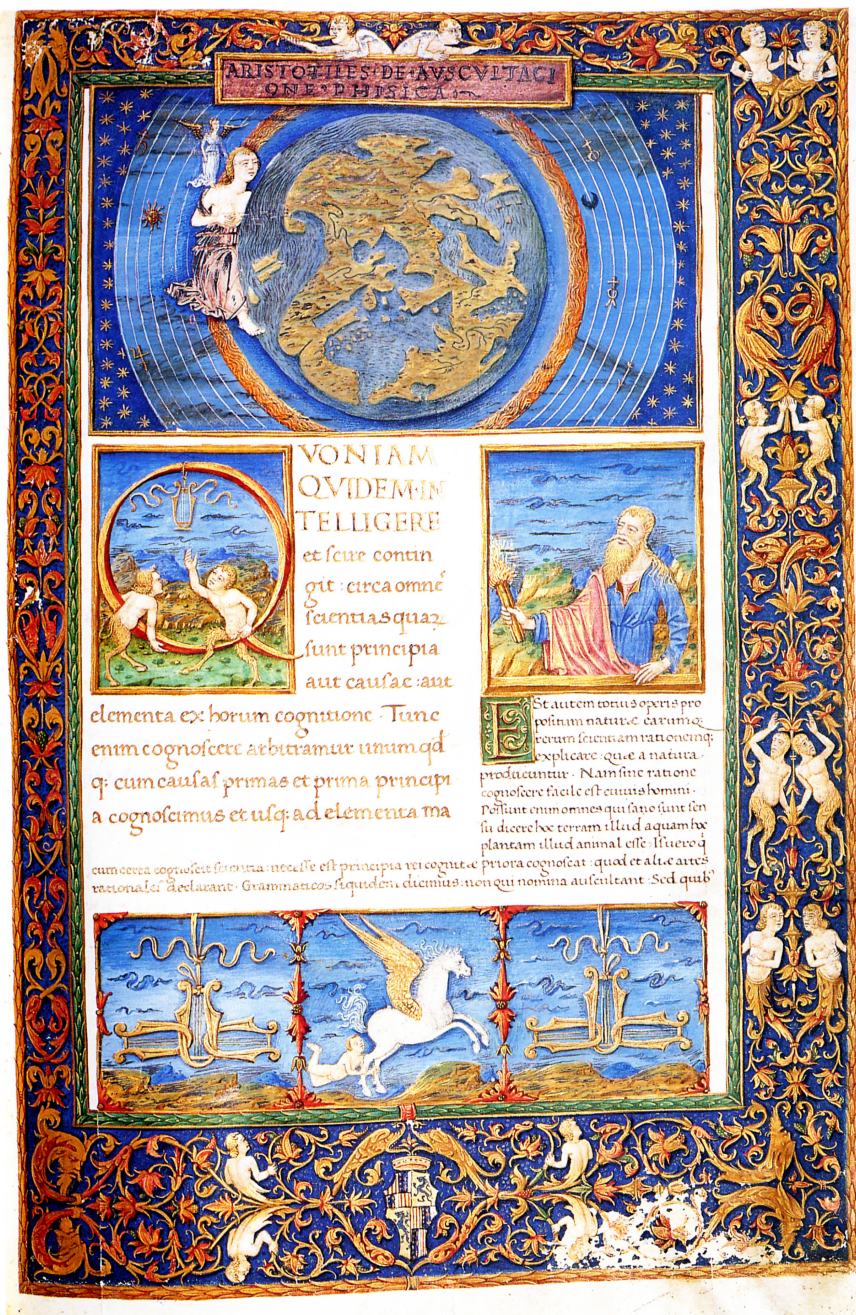 ARISTOTILES·DE·AVSCVLTACI
ONE·PHISICA
QVONIAM
QVIDEM·IN
TELLIGERE
et scire contin
git: circa omnē
scientias quaꝝ
sunt principia
aut causae: aut
elementa ex horum cognitione · Tunc
enim cognoscere arbitramur unum qd
q: cum causas primas et prima principi
a cognoscimus et usq: ad elementa ma
Est autem totius operis pro
positum naturæ earumq
rerum scientiam rationemq;
explicare: quæ a natura
producuntur · Nam sine ratione
cognoscere facile est cuiuis homini ·
Possunt enim omnes qui sano sunt sen
su dicere hoc terram illud aquam hoc
plantam illud animal esse: Is uero q
cum certa cognoscit scientia: necesse est principia rei cognitæ priora cognoscat: quod et aliæ artes
rationales declarant · Grammaticos siquidem dicimus: non qui nomina auscultant · Sed quibꝰ